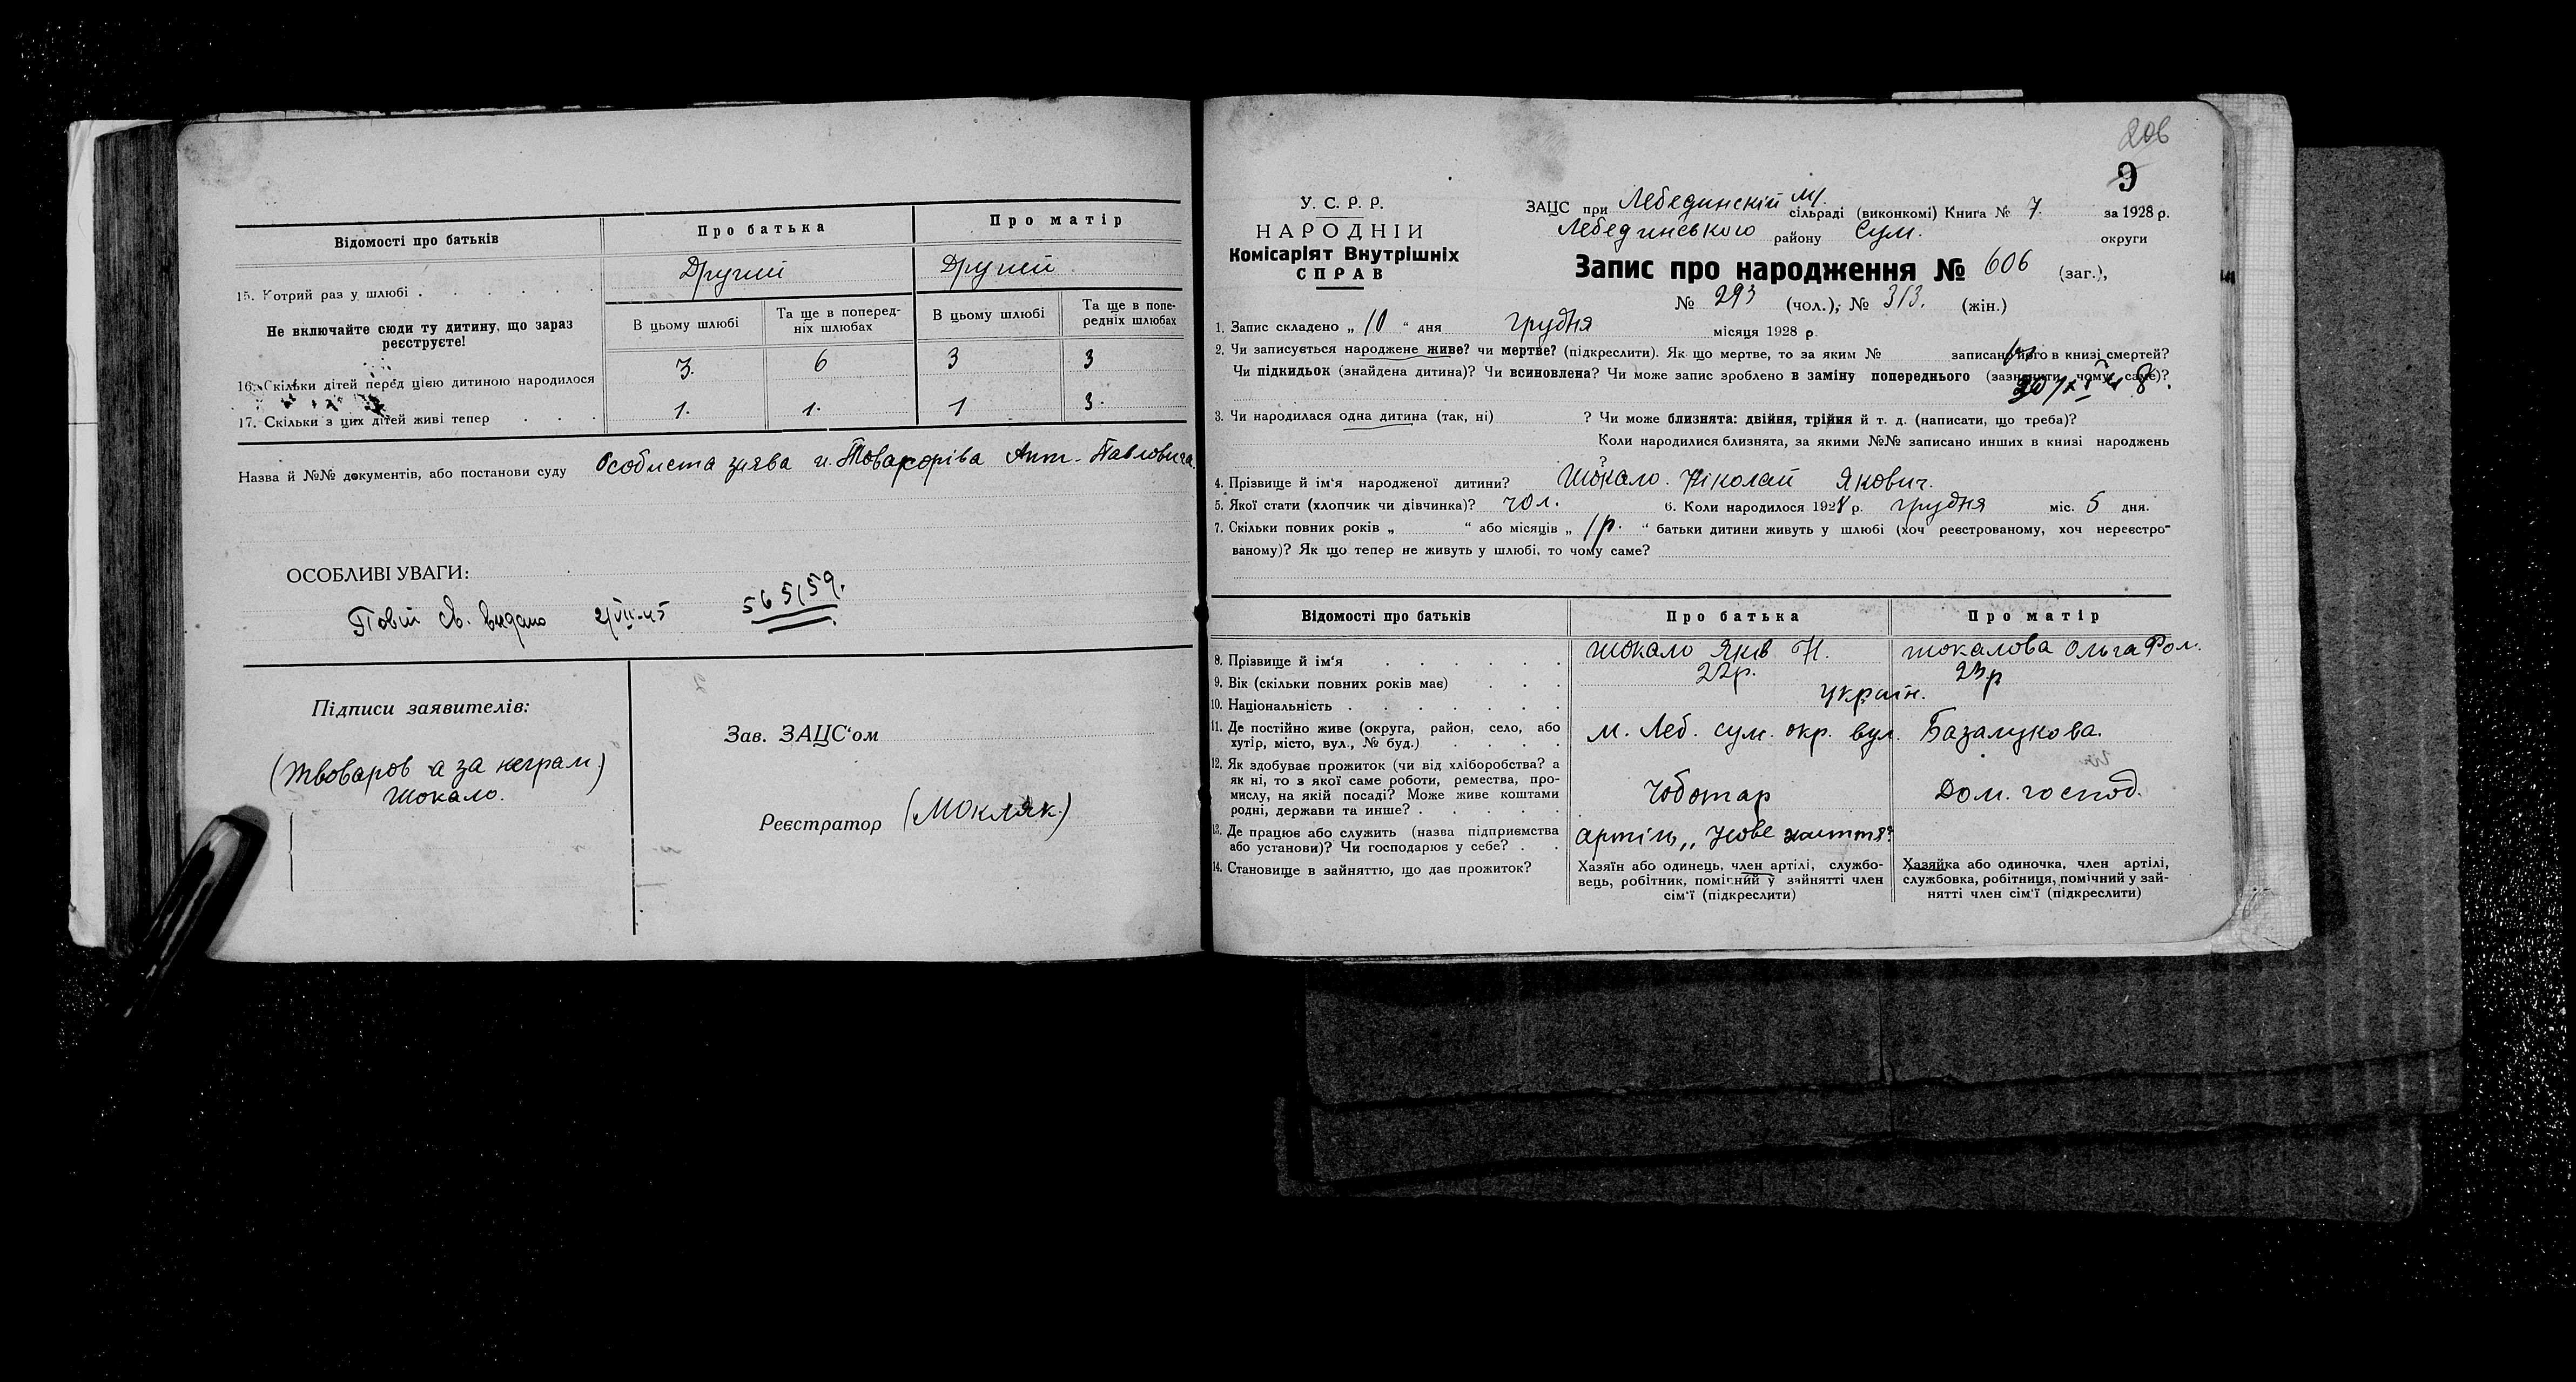 Відомості про батьків
Про батька
Про матір
15. Котрий раз у шлюбі
Другий
Другий
Не включайте сюди ту дитину, що зараз реєструєте!
В цьому шлюбі
Та ще в поперед-
ніх шлюбах
В цьому шлюбі
Та ще в попе-
редніх шлюбах
16. Скільки дітей перед цією дитиною народилося
3. 6 3 3
17. Скільки з цих дітей живі тепер
1. 1. 1 3.
Назва й №№ документів, або постанови суду Особиста заява Павловича
ОСОБЛИВІ УВАГИ:
Повт св. видано 2/VII-45 565/59.
Підписи заявителів:
а за неграм.)
Шокало.
Зав. ЗАЦС'ом
Реєстратор (Мокляк.)
206
9
У. С. Р. Р.
НАРОДНІЙ
Комісаріят Внутрішніх
СПРАВ
ЗАЦС при Лебединскій м/. сільраді (виконкомі) Книга № 7. за 1928 р.
Лебединського району Сум. округи
Запис про народження № 606 (заг.),
№ 293 (чол.); № 313. (жін.)
1. Запис складено „ 10 “ дня грудня місяця 1928 р.
2. Чи записується народжене живе? чи мертве? (підкреслити). Як що мертве, то за яким № записано його в книзі смертей?
Чи підкидьок (знайдена дитина)? Чи всиновлена? Чи може запис зроблено в заміну попереднього (зазначити чому саме)?
3. Чи народилася одна дитина (так, ні) ? Чи може близнята: двійня, трійня й т. д. (написати, що треба)?
Коли народилися близнята, за якими №№ записано инших в книзі народжень
?
4. Прізвище й ім'я народженої дитини? Шокало. Ніколай Якович.
5. Якої стати (хлопчик чи дівчинка)? чол. 6. Коли народилося 1928 р. грудня міс. 5 дня.
7. Скільки повних років „ “ або місяців „ 1 р. “ батьки дитини живуть у шлюбі (хоч реєстрованому, хоч нереєстро-
ваному)? Як що тепер не живуть у шлюбі, то чому саме?
Відомості про батьків
Про батька
Про матір
8. Прізвище й ім'я
Шокало Яків Н.
Шокалова Ольга Ром.
9. Вік (скільки повних років має)
22р.
23р
10. Національність
Україн.
11. Де постійно живе (округа, район, село, або
хутір, місто, вул., № буд.)
м. Леб. Сум. окр. вул. Базалукова.
12. Як здобуває прожиток (чи від хліборобства? а
як ні, то з якої саме роботи, ремества, про-
мислу, на якій посаді? Може живе коштами
родні, держави та инше?
Чоботар
Дом. господ.
13. Де працює або служить (назва підприємства
або установи)? Чи господарює у себе?
артіль „Нове життя“
14. Становище в зайняттю, що дає прожиток?
Хазяїн або одинець, член артілі, службо-
вець, робітник, помічний у зайнятті член
сім'ї (підкреслити)
Хазяйка або одиночка, член артілі,
службовка, робітниця, помічний у зай-
нятті член сім'ї (підкреслити)